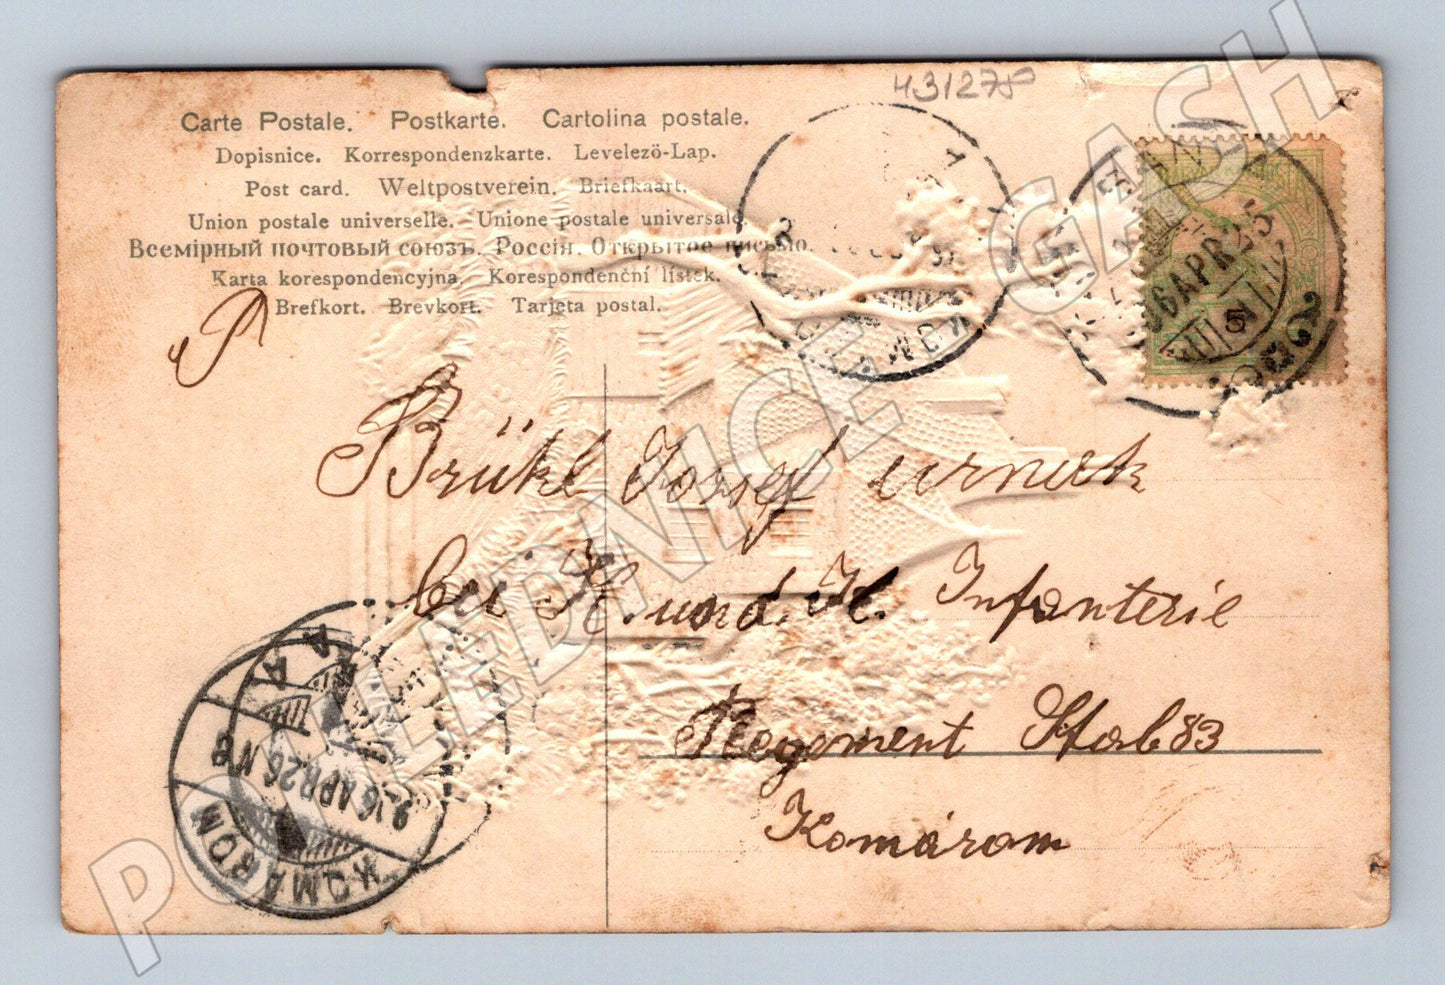 431275
Carte Postale. Postkarte. Cartolina postale.
Dopisnice. Korrespondenzkarte. Levelező-Lap.
Post card. Weltpostverein. Briefkaart.
Union postale universelle. Unione postale universale.
Всемірный почтовый союзъ. Россія. Открытое письмо.
Karta korespondencyjna. Korespondenční listek.
Brefkort. Brevkort. Tarjeta postal.
Brükl Josef urnak
bei K. und. K. Infanterie
Regement Stab 83
Komárom
APR 25
5
KOMÁROM
APR 26 N8
POHLEDNICE GASH